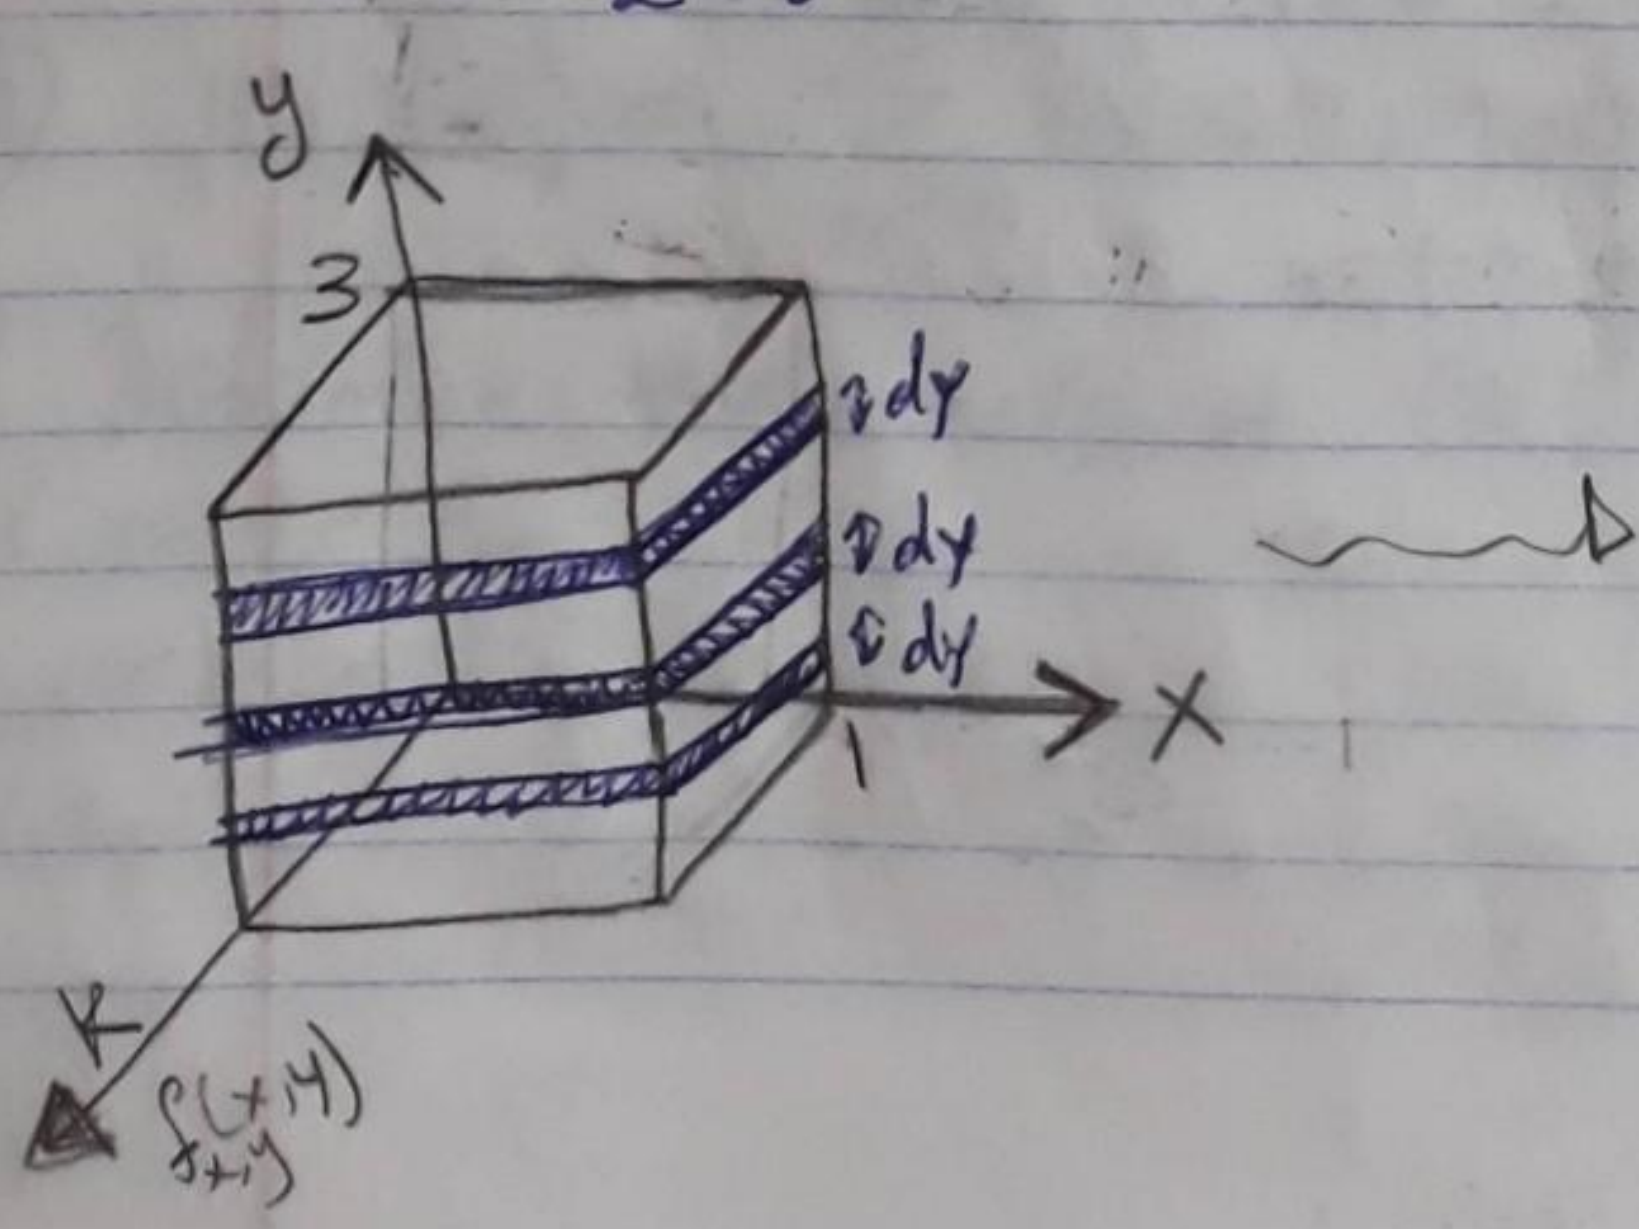 y
3
dy
dy
dy
X
1
K
f(x,y)
x,y